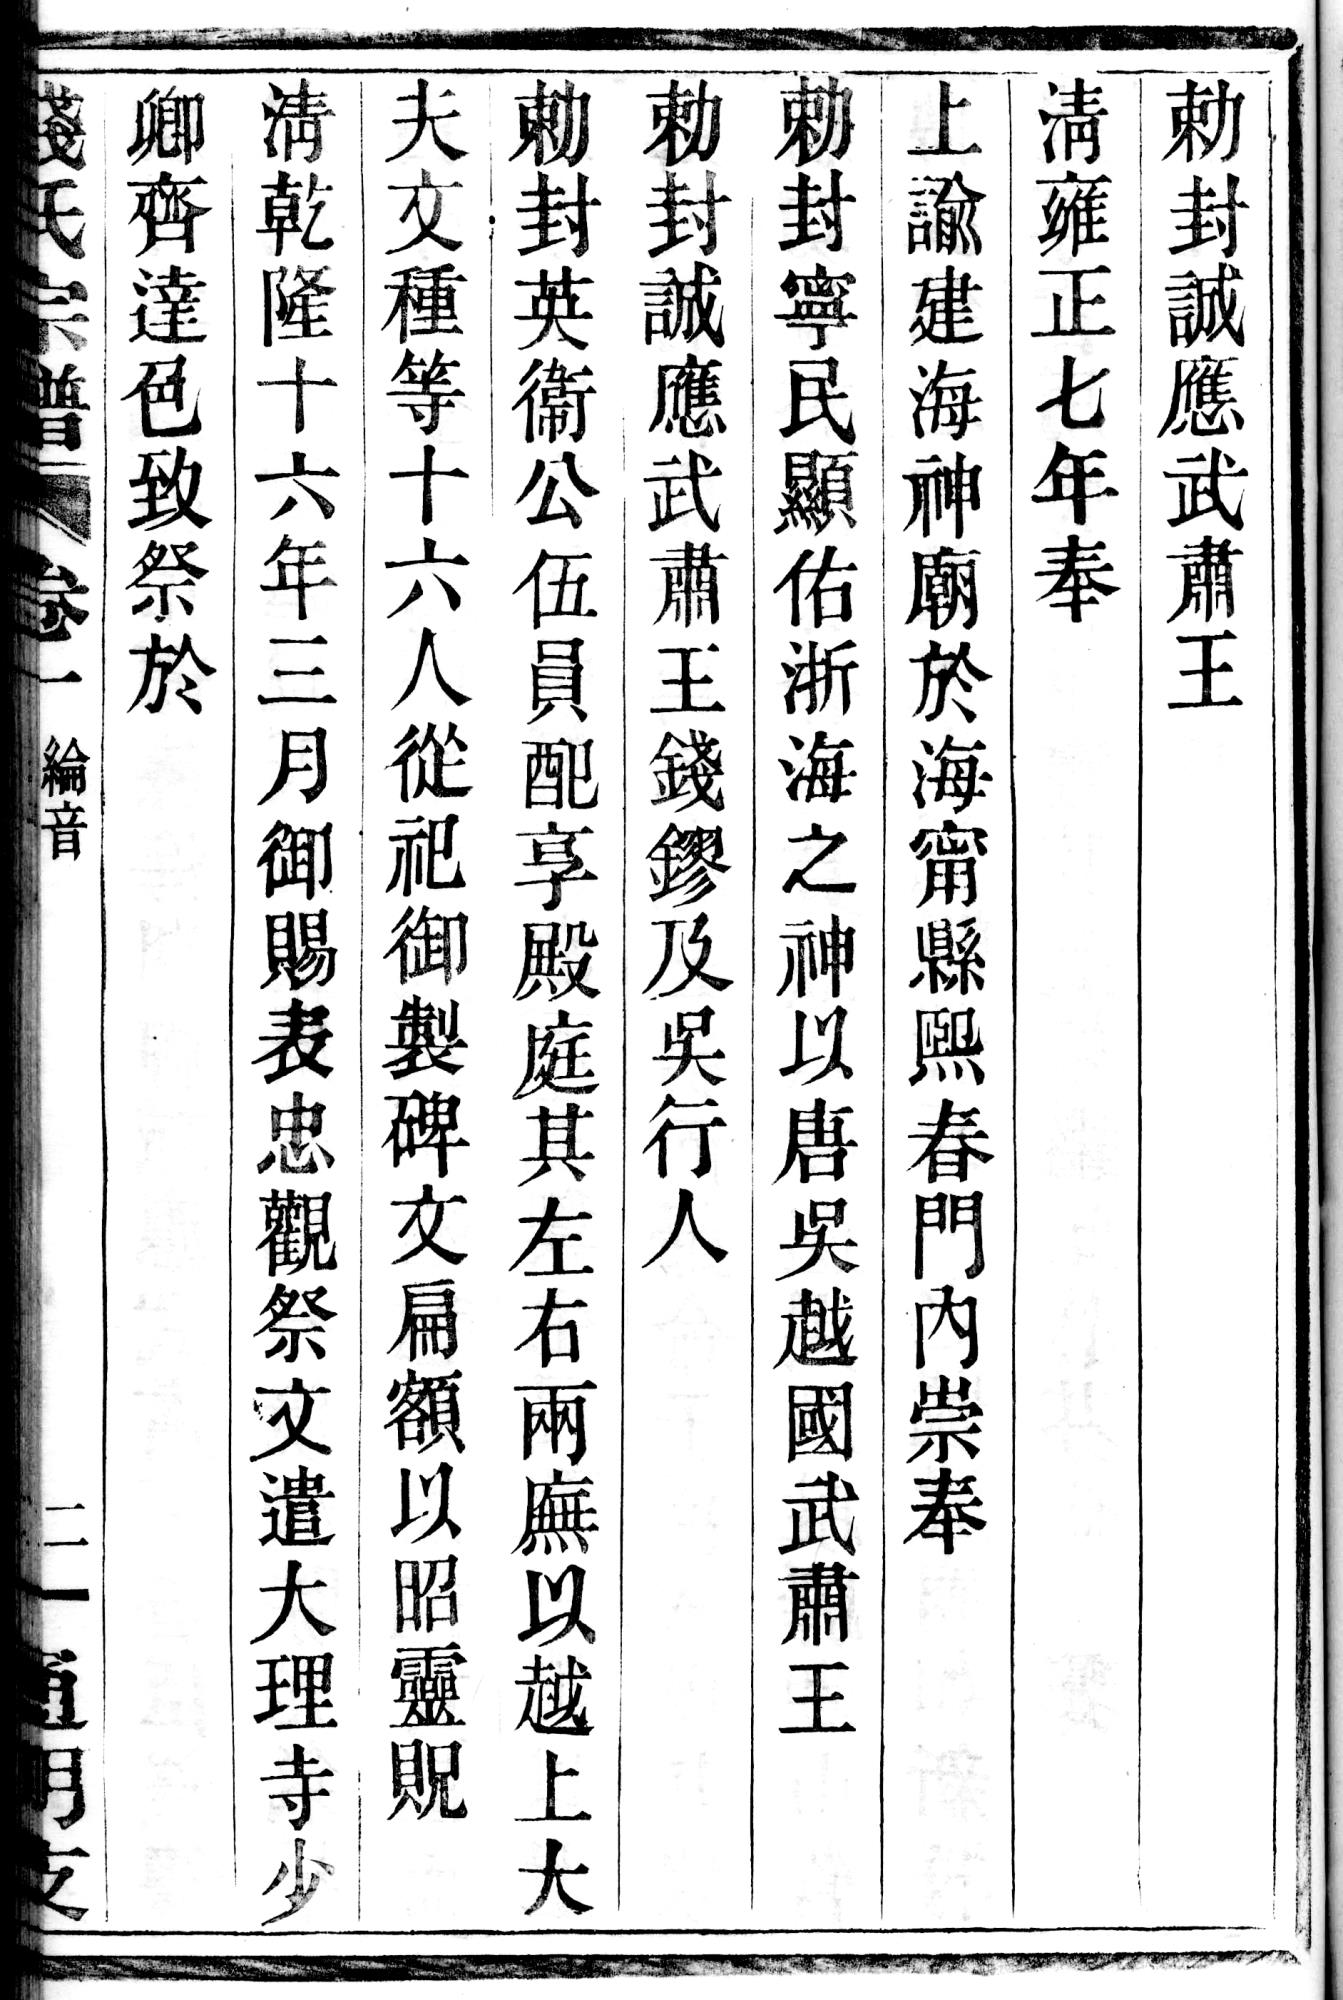 勅封誠應武肅王
淸雍正七年奉
上諭建海神廟於海甯縣熙春門內崇奉
勅封寧民顯佑浙海之神以唐吳越國武肅王
勅封誠應武肅王錢鏐及吳行人
勅封英衞公伍員配享殿庭其左右兩廡以越上大
夫文種等十六人從祀御製碑文扁額以昭靈貺
淸乾隆十六年三月御賜表忠觀祭文遣大理寺少
卿齊達色致祭於
錢氏宗譜 卷一 綸音 二 通明支